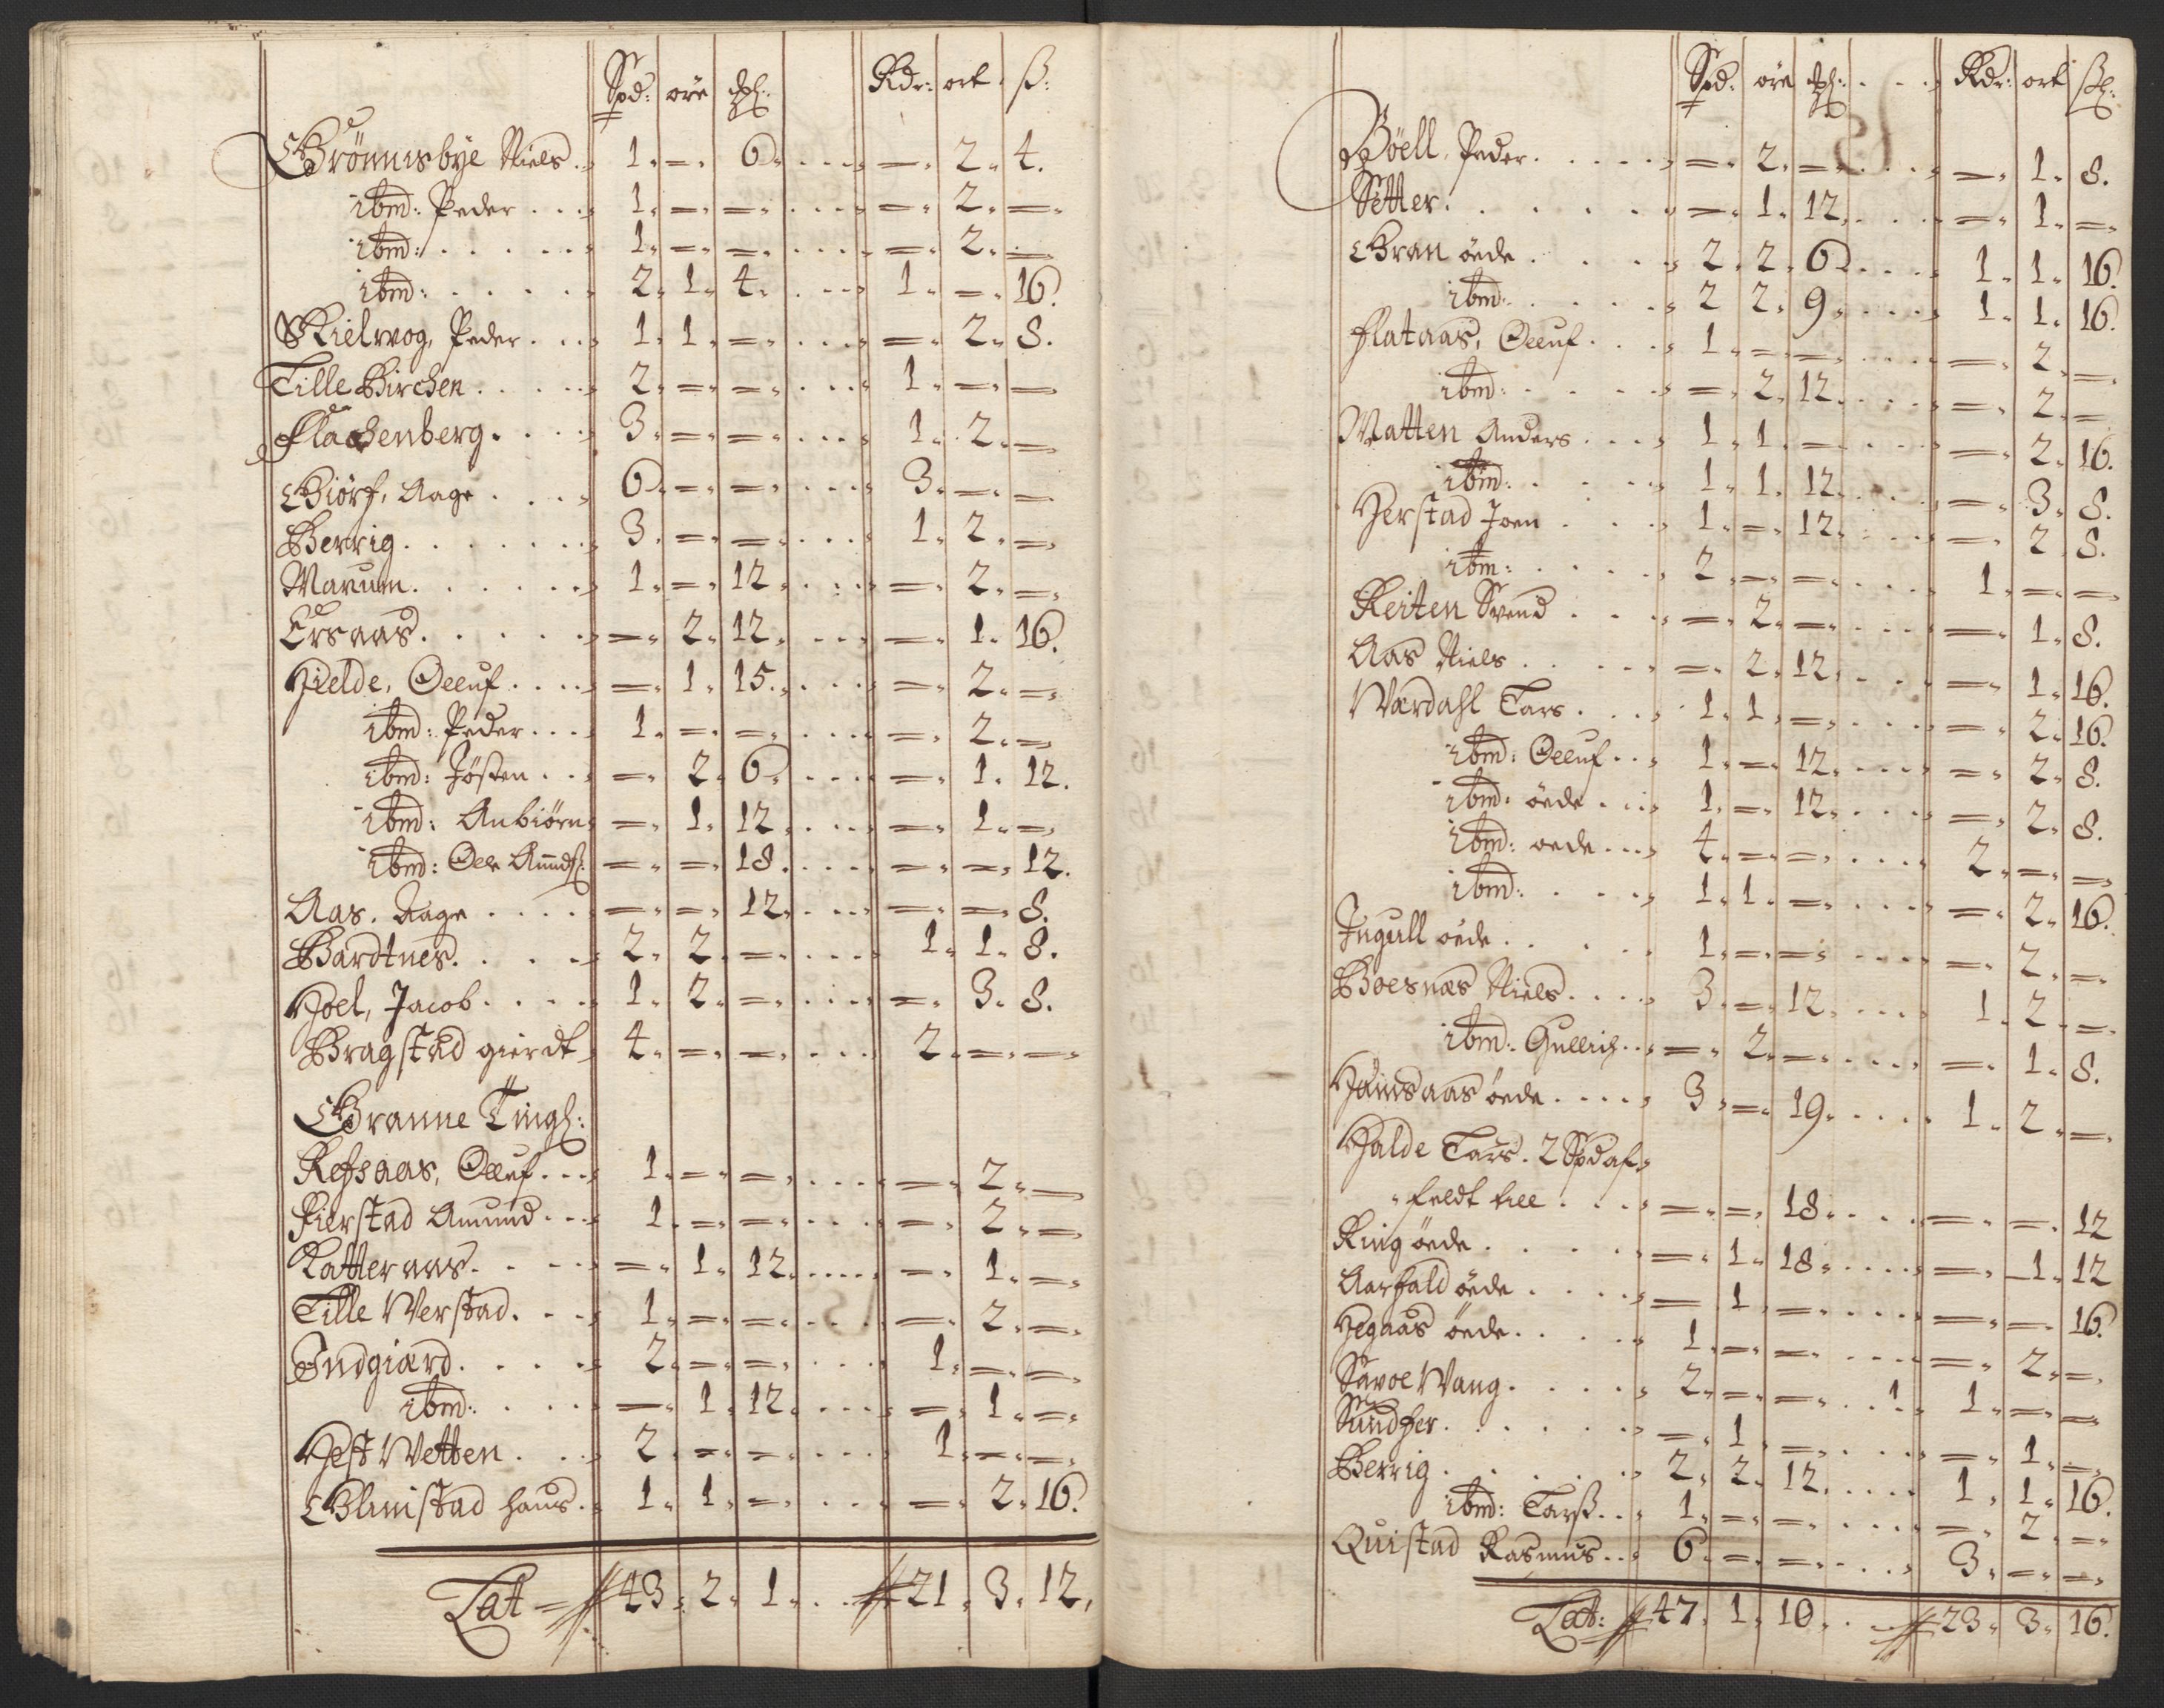 Spd: øre pl: Rdr: ort ß:
Grönnisbye Niels . . 1. = . 6. . . . = . 2. 4.
ibmd: Peder . . . 1. = . = . . . . = . 2. = .
ibmd: . . . . . 1. = . = . . . . = . 2. = .
ibmd: . . . . . 2. 1. 4. . . . 1. = . 16.
Kielwog, Peder . . . 1. 1. = . . . . = . 2. 8.
Tille Kirchen . . . . 2. = . = . . . . 1. = . =
Flachenberg . . . . 3. = . = . . . . 1. 2. =
Giörf, Aage . . . . 6. = . = . . . . 3. = . =
Berrig . . . . . . 3. = . = . . . . 1. 2. =
Marum . . . . . . 1. = . 12. . . . = . 2. = .
Ersaas . . . . . = . 2. 12. . . . = . 1. 16.
Hielde, Oeluf . . . . = . 1. 15. . . . = . 2. = .
ibmd: Peder . . . 1. = . = . . . . = . 2. = .
ibmd: Jößen . . . = . 2. 6. . . . = . 1. 12.
ibmd: Anbiörn = . 1. 12. . . . = . 1. = .
ibmd: Ole Amundß: = . = . 18. . . . = . = . 12.
Aas. Aage . . . . = . = . 12. . . . = . = . 8.
Bardtnes . . . . 2. 2. = . . . . 1. 1. 8.
Hoel, Jacob . . . . 1. 2. = . . . . = . 3. 8.
Bragstad gierdt 4. = . = . . . . 2. = . = .
Granne Tingl:
Refsaas, Oeluf . . . 1. = . = . . . . = . 2. =
Fierstad Amund . . . 1. = . = . . . . = . 2. =
Katteraas . . . . = . 1. 12. . . . = . 1. = .
Tille Werstad . . . 1. = . = . . . . = . 2. = .
Indgiærd . . . . 2. = . = . . . . 1. = . = .
ibmd: . . . . = . 1. 12. . . . = . 1. = .
Hest Wetten . . . 2. = . = . . . . 1. = . = .
Glinistad hans . . 1. 1. = . . . . = . 2. 16.
Lat = 43. 2. 1. . . 21. 3. 12.
Spd: øre pl: . . . Rdr: ort ßl:
Böell, Peder . . . . = . 2. = . . . . = . 1. 8.
Setter . . . . . = . 1. 12. . . . = . 1. = .
Gran öede . . . . 2. 2. 6. . . . 1. 1. 16.
ibmd: . . . . 2 2. 9. . . . 1. 1. 16.
Flataas, Oeluf . . . 1. = . = . . . . = . 2. = .
ibmd: . . . . = . 2. 12. . . . = . 2. =
Matten Anders . . . 1. 1. = . . . . = . 2. 16.
ibmd: . . . . 1. 1. 12. . . . = . 3. 8.
Herstad Joen . . . 1. = . 12. . . . = . 2. 8.
ibm: . . . . 2. = . = . . . . 1. = . =
Reiten Svend . . . = . 2. = . . . . = . 1. 8.
Aas Niels . . . . = . 2. 12. . . . = . 1. 16.
Værdahl Lars . . . 1. 1. = . . . . = . 2. 16.
ibmd: Oeluf . . 1. = . 12. . . . = . 2. 8.
ibmd: öede . . . 1. = . 12. . . . = . 2. 8.
ibmd: oede . . . 4. = . = . . . . 2. = . = .
ibmd: . . . . 1. 1. = . . . . = . 2. 16.
Ingull öede . . . . 1. = . = . . . . = . 2. = .
Boesnæs Niels . . . . 3. = . 12. . . . 1. 2. = .
ibmd: Gullich . . = . 2. = . . . . = . 1. 8.
Hamsaas öede . . . . 3. = . 19. . . . 1. 2. = .
Halde Lars. 2 Spd af
feldt till . . . = . = . 18. . . . = . = . 12
Ring öede . . . . = . 1. 18. . . . = . 1. 12
Aarfald öede . . . . = . 1. = . . . . = . = . 16.
Hegaas öede . . . . 1. = . = . . . . = . 2. = .
Savoe Vang . . . . 2. = . = . . . 1 1. = . =
Sundfer . . . . . = . 1. = . . . . = . 1. = .
Berrig . . . . . 2. 2. 12. . . . 1. 1. 16.
ibmd: Larß . . 1. = . = . . . . = . 2. = .
Quistad Rasmus . . 6. = . = . . . . 3. = . = .
Lat: 47. 1. 10. . . 23. 3. 16.